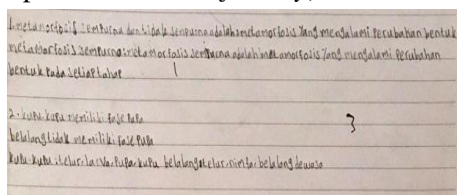 1. metamorfosis sempurna dan tidak sempurna adalah metamorfosis yang mengalami perubahan bentuk
metamorfosis sempurna: metamorfosis sempurna adalah metamorfosis yang mengalami perubahan
bentuk pada setiap tahap 1
2. kupu-kupu memiliki fase pupa 3
belalang tidak memiliki fase pupa
kupu-kupu: telur, larva, pupa, kupu belalang: telur, nimfa, belalang dewasa